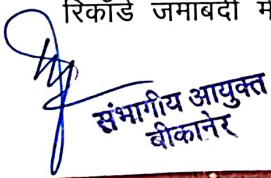 रिकॉर्ड जमाबंदी
संभागीय आयुक्त
बीकानेर